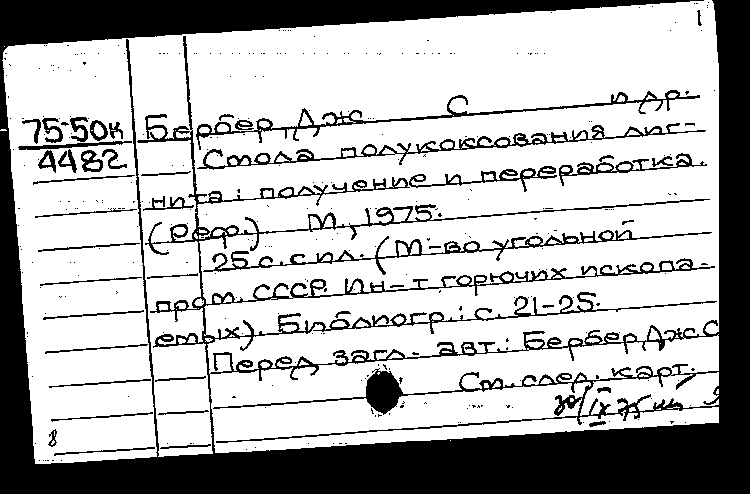 1
75-50к Бербер, Дж С и др.
4482 Смола полукоксования лиг-
нита: получение и переработка.
(Реф.) М., 1975.
25 с. с ил. (М-во угольной
пром. СССР. Ин-т горючих ископа-
емых). Библиогр.: с. 21-25.
Перед загл. авт.: Бербер Дж. С
См. след. карт.
IX 75
8